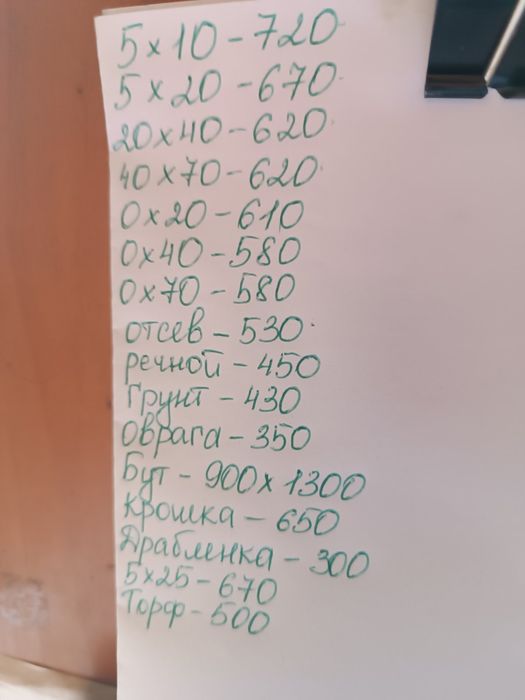 5 x 10 - 720
5 x 20 - 670
20 x 40 - 620
40 x 70 - 620
0 x 20 - 610
0 x 40 - 580
0 x 70 - 580
отсев - 530
речной - 450
Грунт - 430
Оврага - 350
Бут - 900 x 1300
Крошка - 650
Драбленка - 300
5 x 25 - 670
Торф - 500